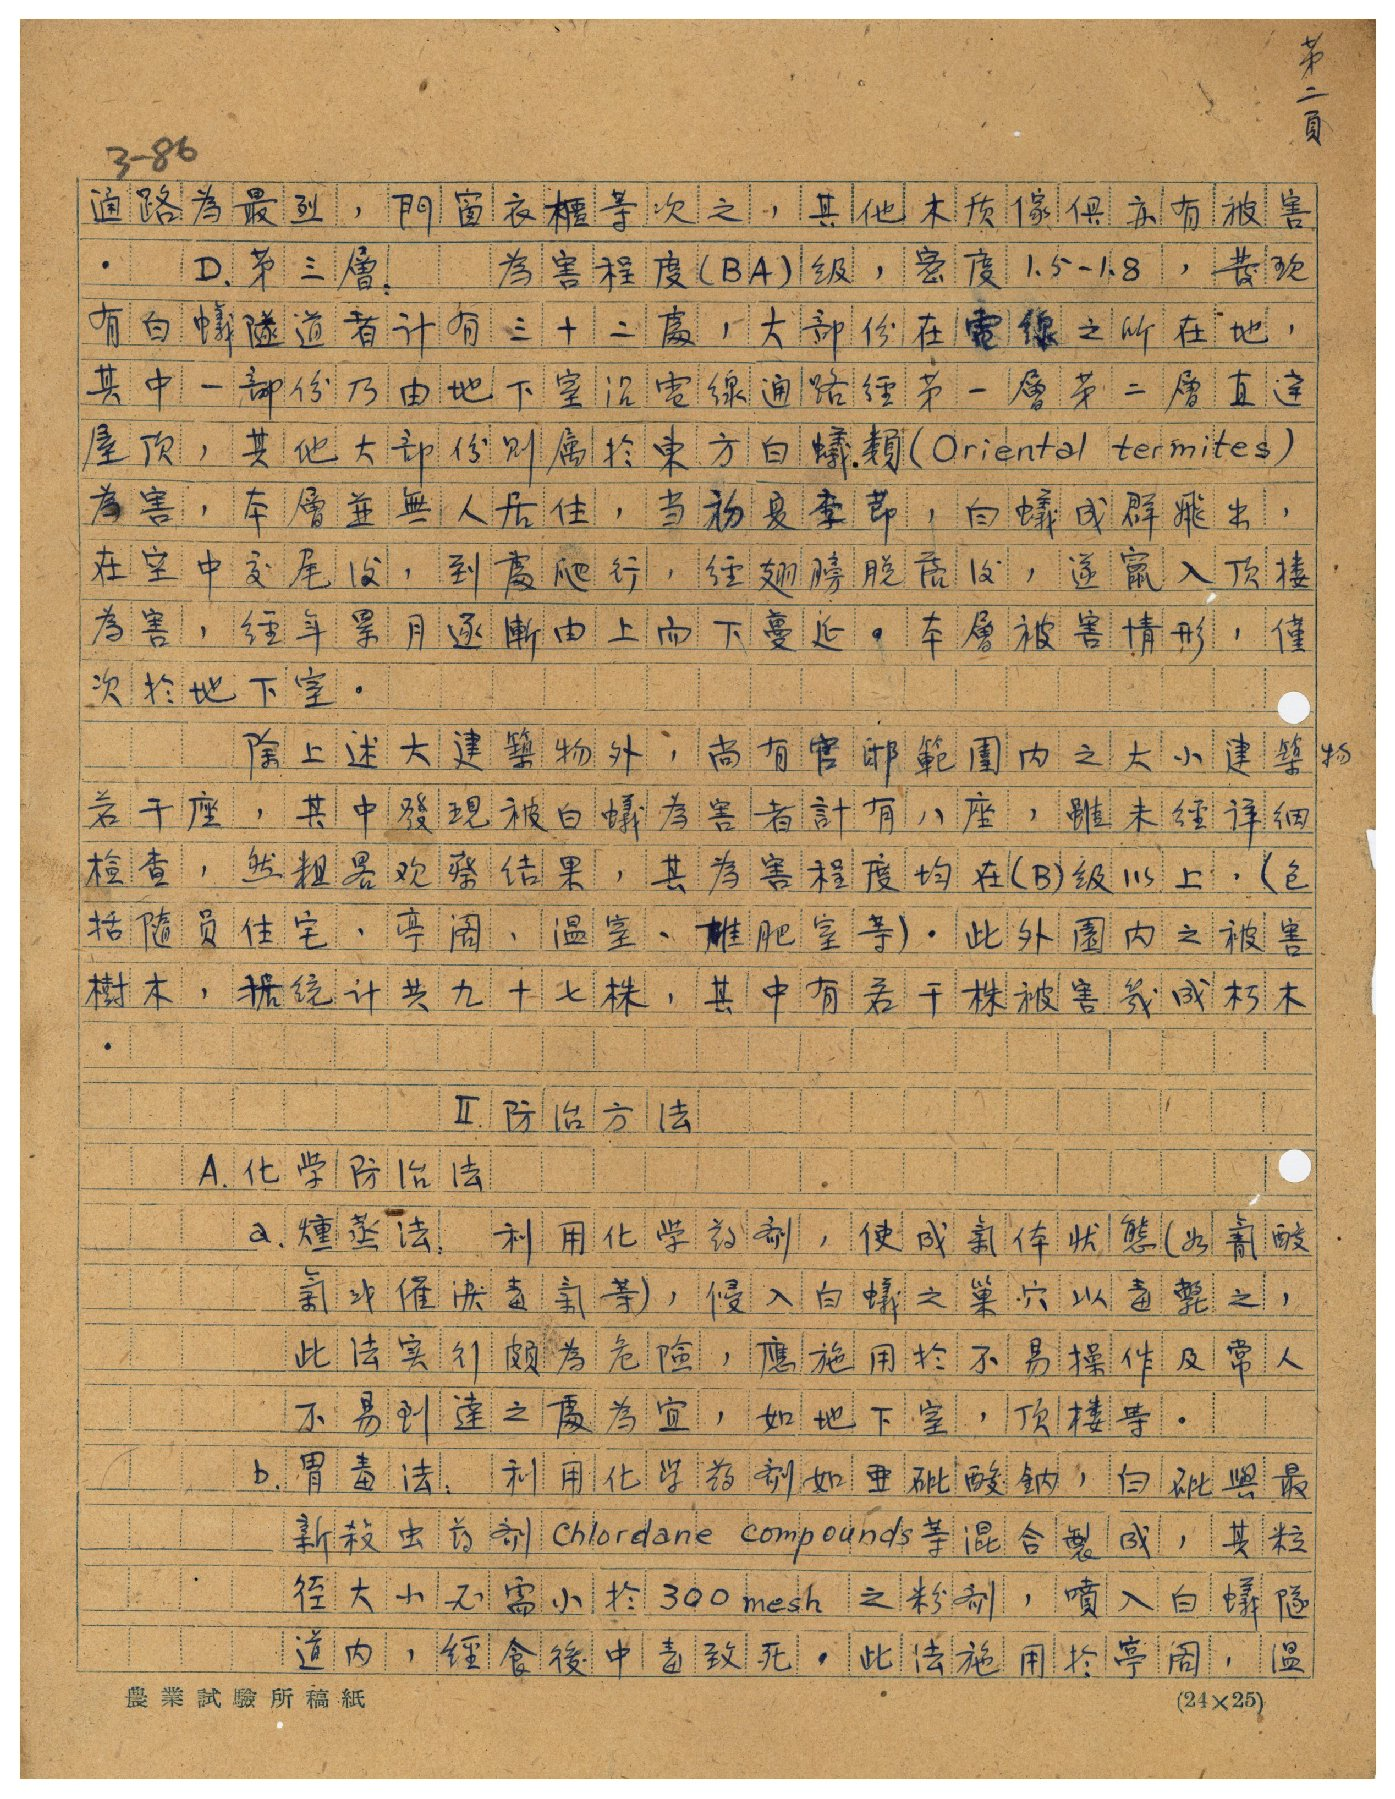 第二頁
3-86
通路為最烈，門窗衣櫃等次之，其他木质傢俱亦有被害
．D.第三層.　為害程度(BA)級，密度1.5-1.8，發现
有白蟻隧道者计有三十二處，大部份在電線之所在地，
其中一部份乃由地下室沿電線通路經第一層第二層直达
屋顶，其他大部份則属於東方白蟻類(Oriental termites)
為害，本層並無人居住，当初夏季節，白蟻成群飛出，
在空中交尾後，到處爬行，經翅膀脱落後，遂竄入顶楼
為害，經年累月逐漸由上而下蔓延。本層被害情形，僅
次於地下室．
除上述大建築物外，尚有官邸範圍内之大小建築物
若干座，其中發現被白蟻為害者計有八座，雖未經详細
檢查，然粗畧观察结果，其為害程度均在(B)級以上．(包
括隨员住宅、亭阁、温室、堆肥室等)．此外園内之被害
樹木，据统计共九十七株，其中有若干株被害幾成朽木
．
II.防治方法
A.化学防治法
a.燻蒸法.　利用化学葯剂，使成氣体狀態(如氰酸
氣或催淚毒氣等)，侵入白蟻之巢穴以毒斃之，
此法实行頗為危險，應施用於不易操作及常人
不易到達之處為宜，如地下室，顶楼等．
b.胃毒法.　利用化学葯剂如亜砒酸鈉，白砒與最
新殺虫葯剂Chlordane compounds等混合製成，其粒
径大小不需小於300 mesh 之粉剂，噴入白蟻隧
道内，經食後中毒致死．此法施用於亭阁，温
農業試驗所稿紙
(24×25)